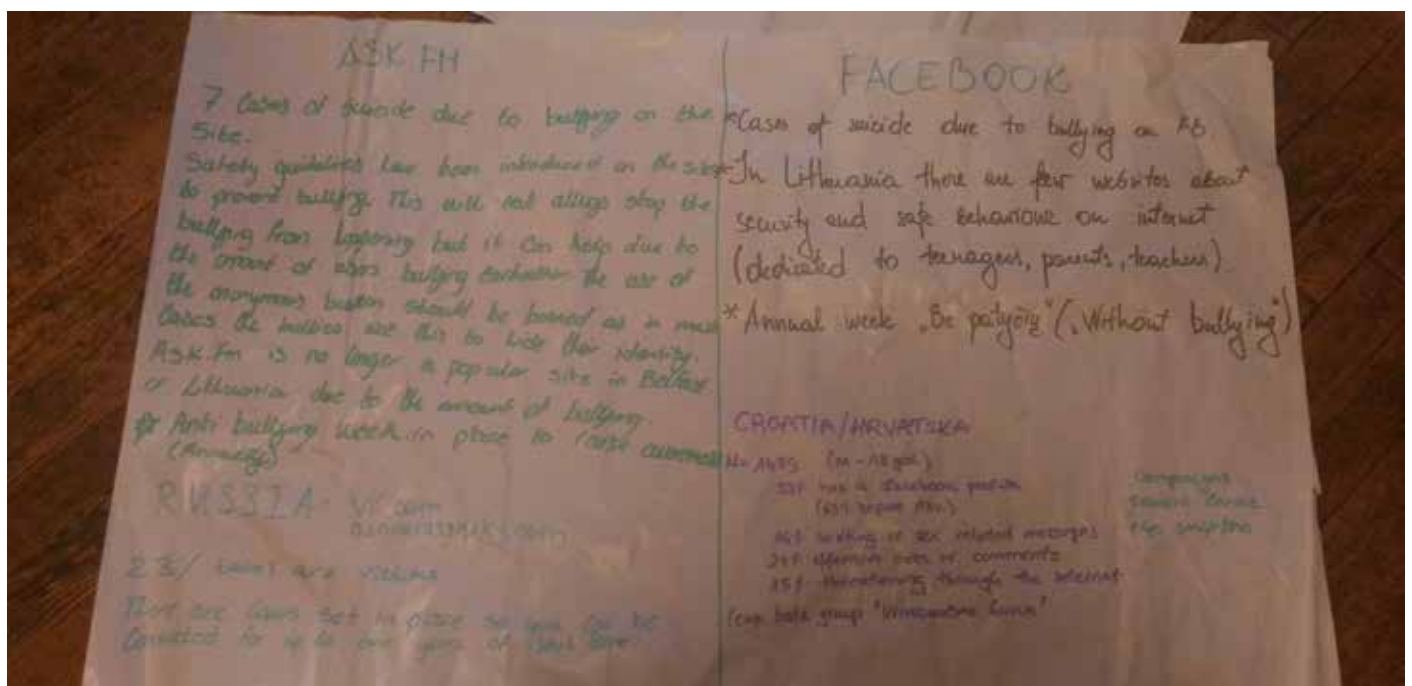 ASK FM
7 Cases of suicide due to bullying on the
Site.
Safety guidelines have been introduced on the site
to prevent bullying. This will not allways stop the
bullying from happening but it can help due to
the amount of users bullying eachother the use of
the anonymous button should be banned as in most
Cases the bullies use this to hide their identity.
Ask.fm is no longer a popular site in Belfast
or Lithuania due to the amount of bullying.
Anti bullying week in place to raise awareness
(Annually)
RUSSIA: VK.com
23% teens are victims
There are laws set in place so you can be
convicted for up to one year of
FACEBOOK
*Cases of suicide due to bullying on FB
*In Lithuania there are few websites about
security and safe behaviour on internet
(dedicated to teenagers, parents, teachers)
*Annual week "Be patyčių" ("Without bullying")
CROATIA/HRVATSKA
has a facebook profile
sexting or sex related messages
offensive or comments
threatening through the internet
hate group
campaigns